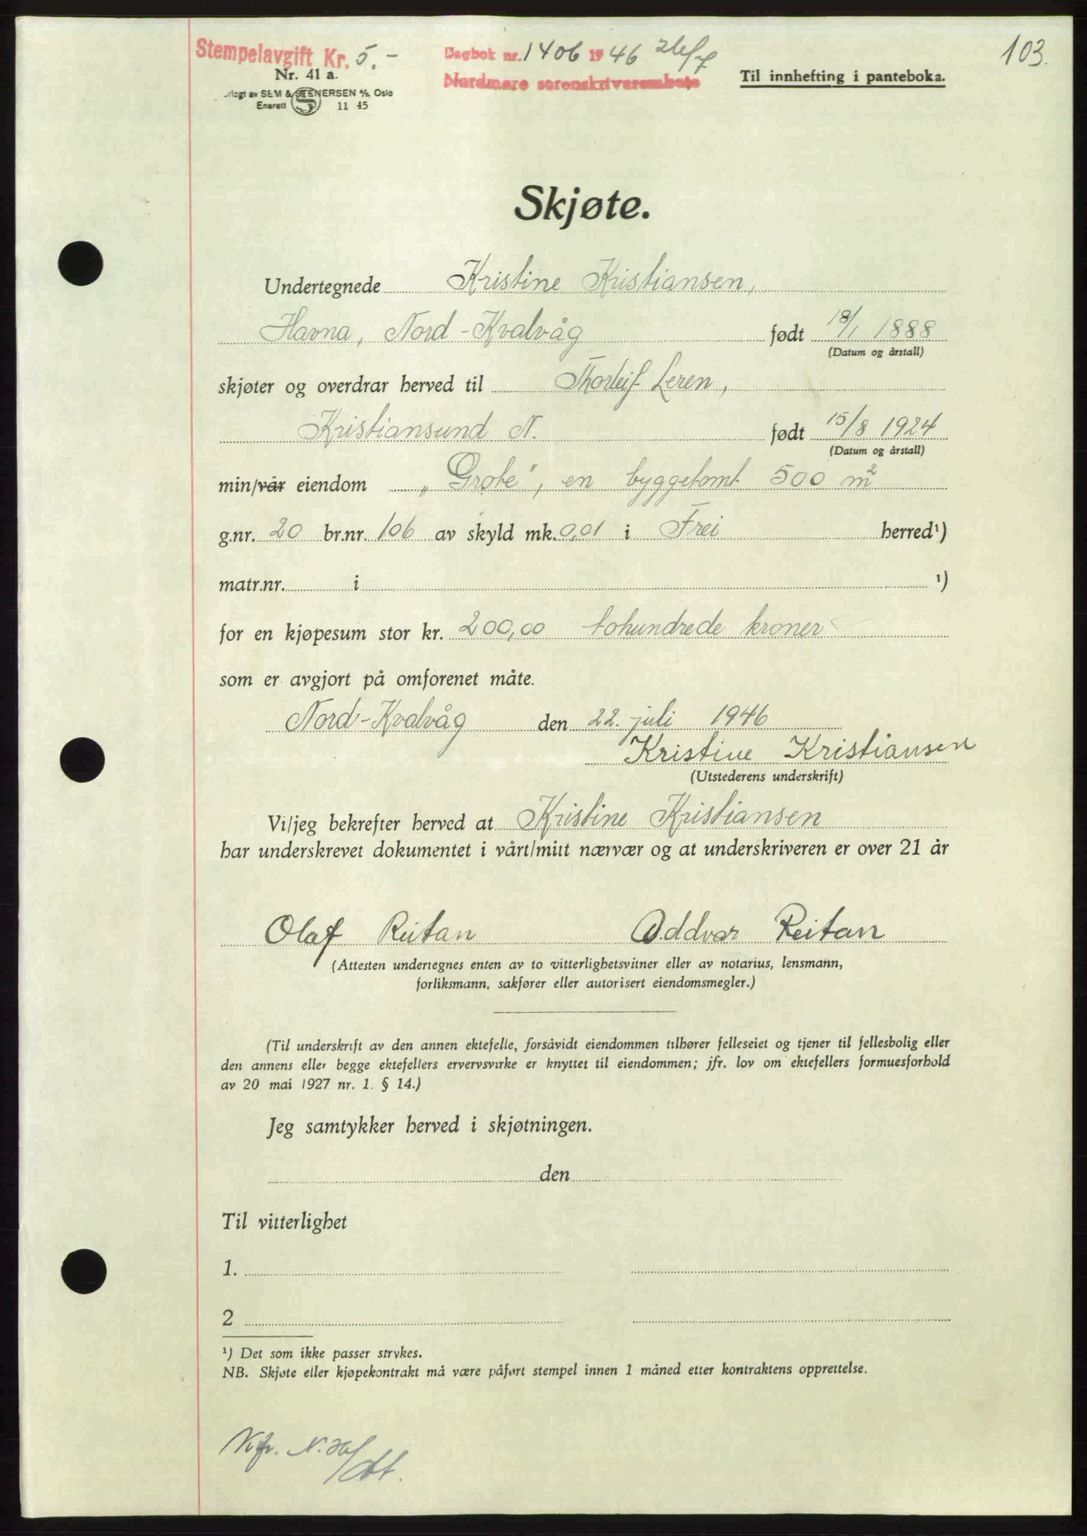 Stempelavgift Kr. 5.-
Nr. 41 a.
SEM & STENERSEN A/S, Oslo
Enerett S 11 45
Dagbok nr. 1406 1946 26/7
Nordmøre sorenskriverembete
Til innhefting i panteboka.
103.
Skjøte.
Undertegnede Kristine Kristiansen,
Havna, Nord-Kvalvåg født 18/1 1888
(Datum og årstall)
skjøter og overdrar herved til Thorleif Leren,
Kristiansund N. født 15/8 1924
(Datum og årstall)
min/vår eiendom „Grøte", en byggetomt 500 m²
g.nr. 20 br.nr. 106 av skyld mk. 0,01 i Frei herred¹)
matr.nr. i ¹)
for en kjøpesum stor kr. 200,00 tohundrede kroner
som er avgjort på omforenet måte.
Nord-Kvalvåg den 22. juli 1946
Kristine Kristiansen
(Utstederens underskrift)
Vi/jeg bekrefter herved at Kristine Kristiansen
har underskrevet dokumentet i vårt/mitt nærvær og at underskriveren er over 21 år
Olaf Reitan Oddvar Reitan
(Attesten undertegnes enten av to vitterlighetsvitner eller av notarius, lensmann,
forliksmann, sakfører eller autorisert eiendomsmegler.)
(Til underskrift av den annen ektefelle, forsåvidt eiendommen tilhører felleseiet og tjener til fellesbolig eller
den annens eller begge ektefellers ervervsvirke er knyttet til eiendommen; jfr. lov om ektefellers formuesforhold
av 20 mai 1927 nr. 1. § 14.)
Jeg samtykker herved i skjøtningen.
den
Til vitterlighet
1.
2
¹) Det som ikke passer strykes.
NB. Skjøte eller kjøpekontrakt må være påført stempel innen 1 måned etter kontraktens opprettelse.